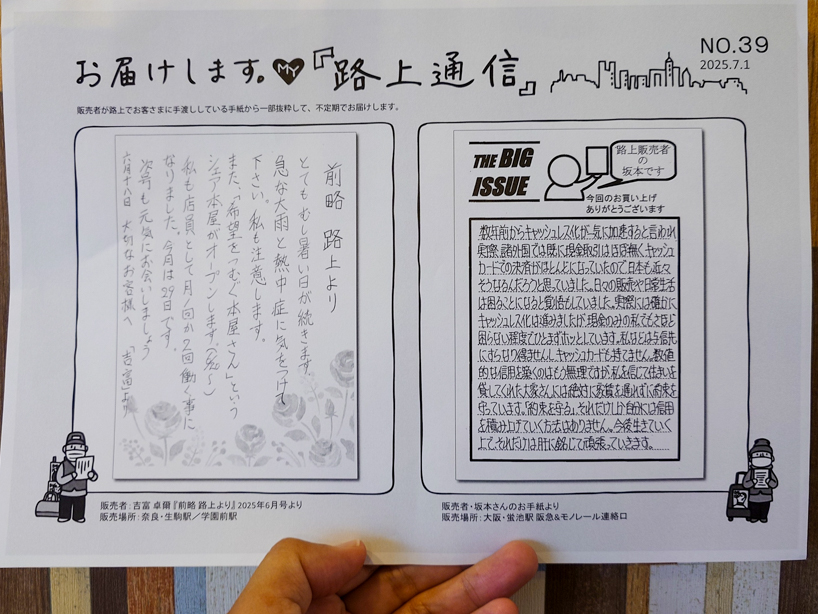 お届けします。MY『路上通信』
NO.39
2025.7.1
販売者が路上でお客さまに手渡ししている手紙から一部抜粋して、不定期でお届けします。
前略 路上より
とてもむし暑い日が続きます。
急な大雨と熱中症に気をつけて
下さい。私も注意します。
また、「希望をつむぐ本屋さん」という
シェア本屋がオープンします。
私も店員として月1回か2回働く事に
なりました。今月は29日です。
次号も元気にお会いしましょう
六月十八日 大切なお客様へ 「吉富」より
販売者:吉富 卓爾『前略 路上より』2025年6月号より
販売場所:奈良・生駒駅/学園前駅
THE BIG
ISSUE
路上販売者
の
坂本です
今回のお買い上げ
ありがとうございます
数年前からキャッシュレス化が一気に加速すると言われ
実際、諸外国では既に現金取引はほぼ無く、キャッシュ
カードでの決済がほとんどになっていたので日本も近々
そうなるんだろうと思っていました。日々の販売や日常生活
は困ることになると覚悟もしていました。実際には確かに
キャッシュレス化は進みましたが、現金のみの私でもさほど
困らない程度でひとまずホッとしています。私などは与信先
にすらなり得ませんし、キャッシュカードも持てません。数値
的な信用を築くのはもう無理ですが、私を信じて住まいを
貸してくれた大家さんには絶対に家賃を遅れずに約束を
守っています。「約束を守る」、それだけしか自分には信用
を積み上げていく方法はありません。今後生きていく
上で、それだけは肝に銘じて頑張っていきます。
販売者・坂本さんのお手紙より
販売場所:大阪・蛍池駅 阪急&モノレール連絡口